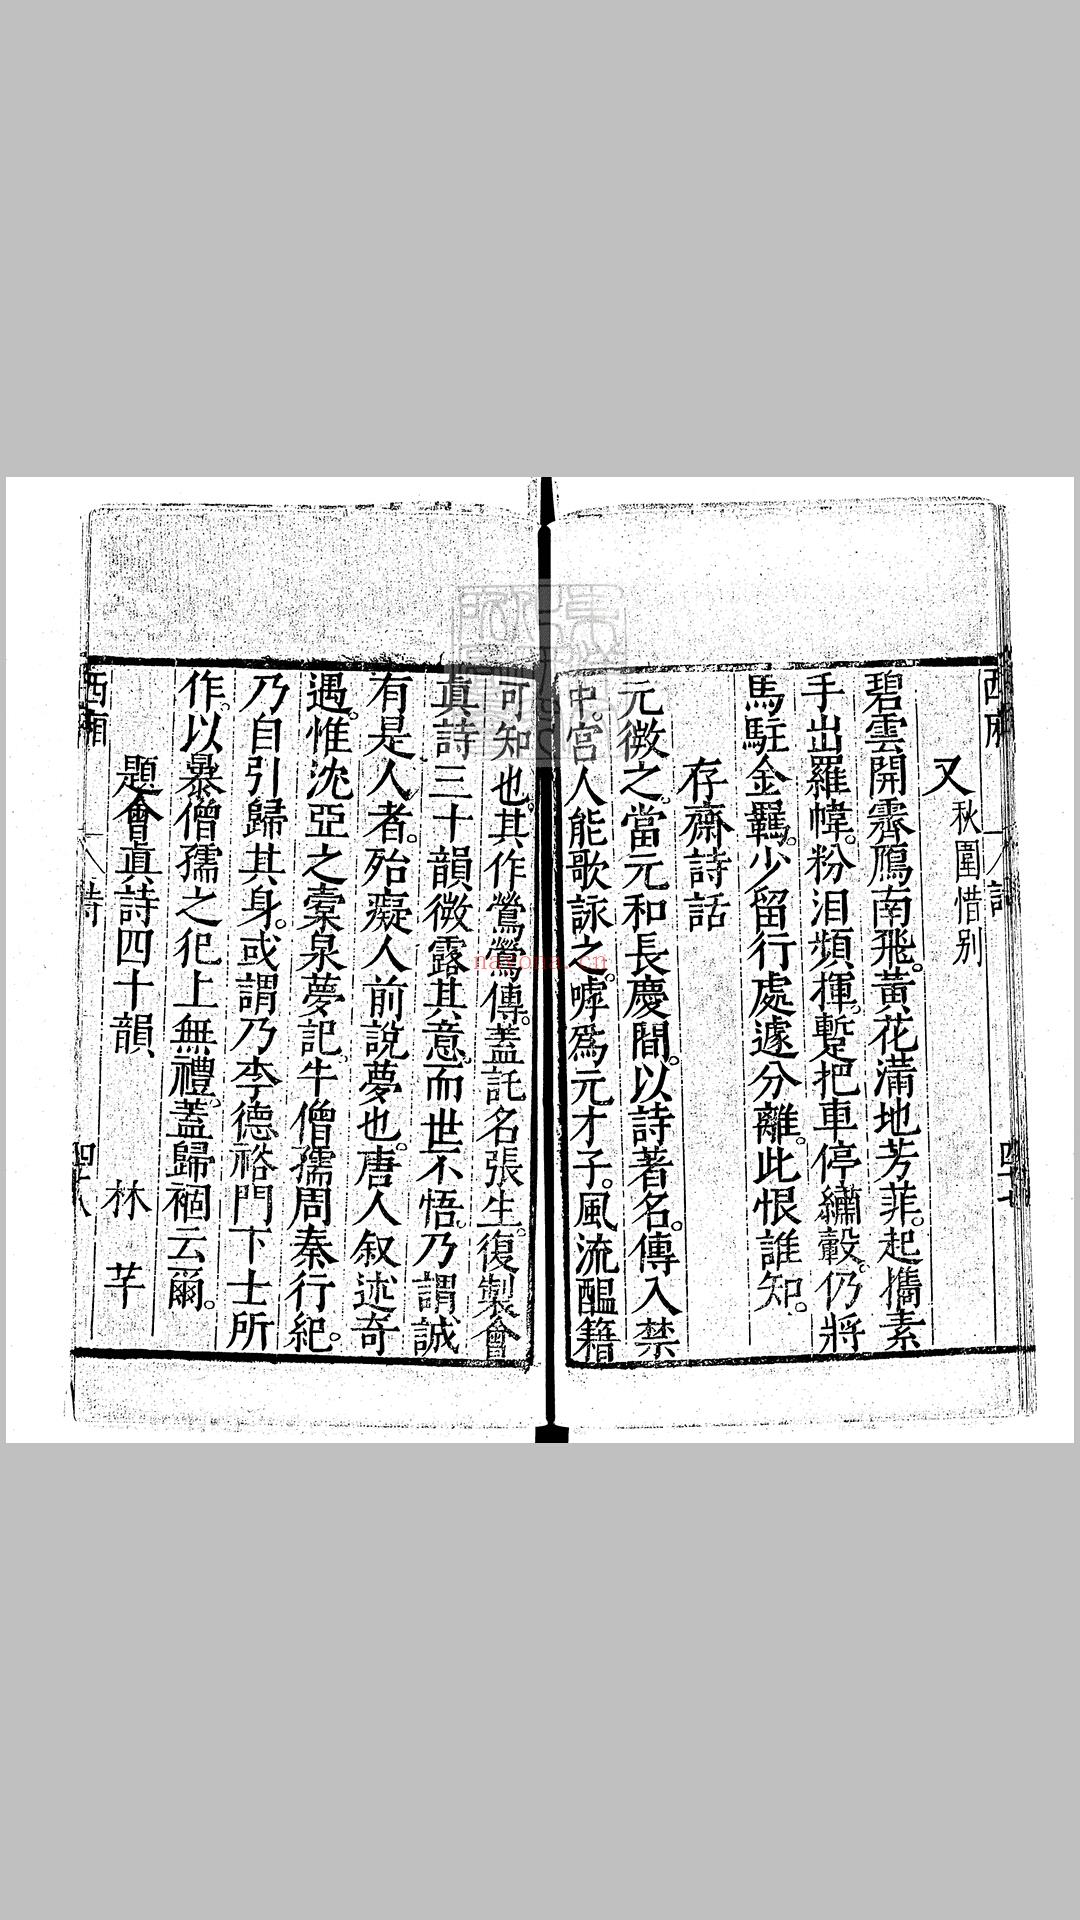 又 秋闈惜别
碧雲開霽鴈南飛。黃花滿地芳菲。起攜素
手出羅幃。粉泪頻揮。暫把車停繡轂。仍將
馬駐金羈。少留行處遽分離。此恨誰知。
存齋詩話
元微之。當元和長慶間。以詩著名。傳入禁
中。宮人能歌詠之。嘑爲元才子。風流醞籍
可知也。其作鶯鶯傳。蓋託名張生。復製會
眞詩三十韻微露其意。而世不悟。乃謂誠
有是人者。殆癡人前說夢也。唐人叙述奇
遇。惟沈亞之橐泉夢記。牛僧孺周秦行紀。
乃自引歸其身。或謂乃李德裕門下士所
作。以暴僧孺之犯上無禮。蓋歸禍云爾。
題會眞詩四十韻 林 芊
西廂 詩 四十八
nayona.cn